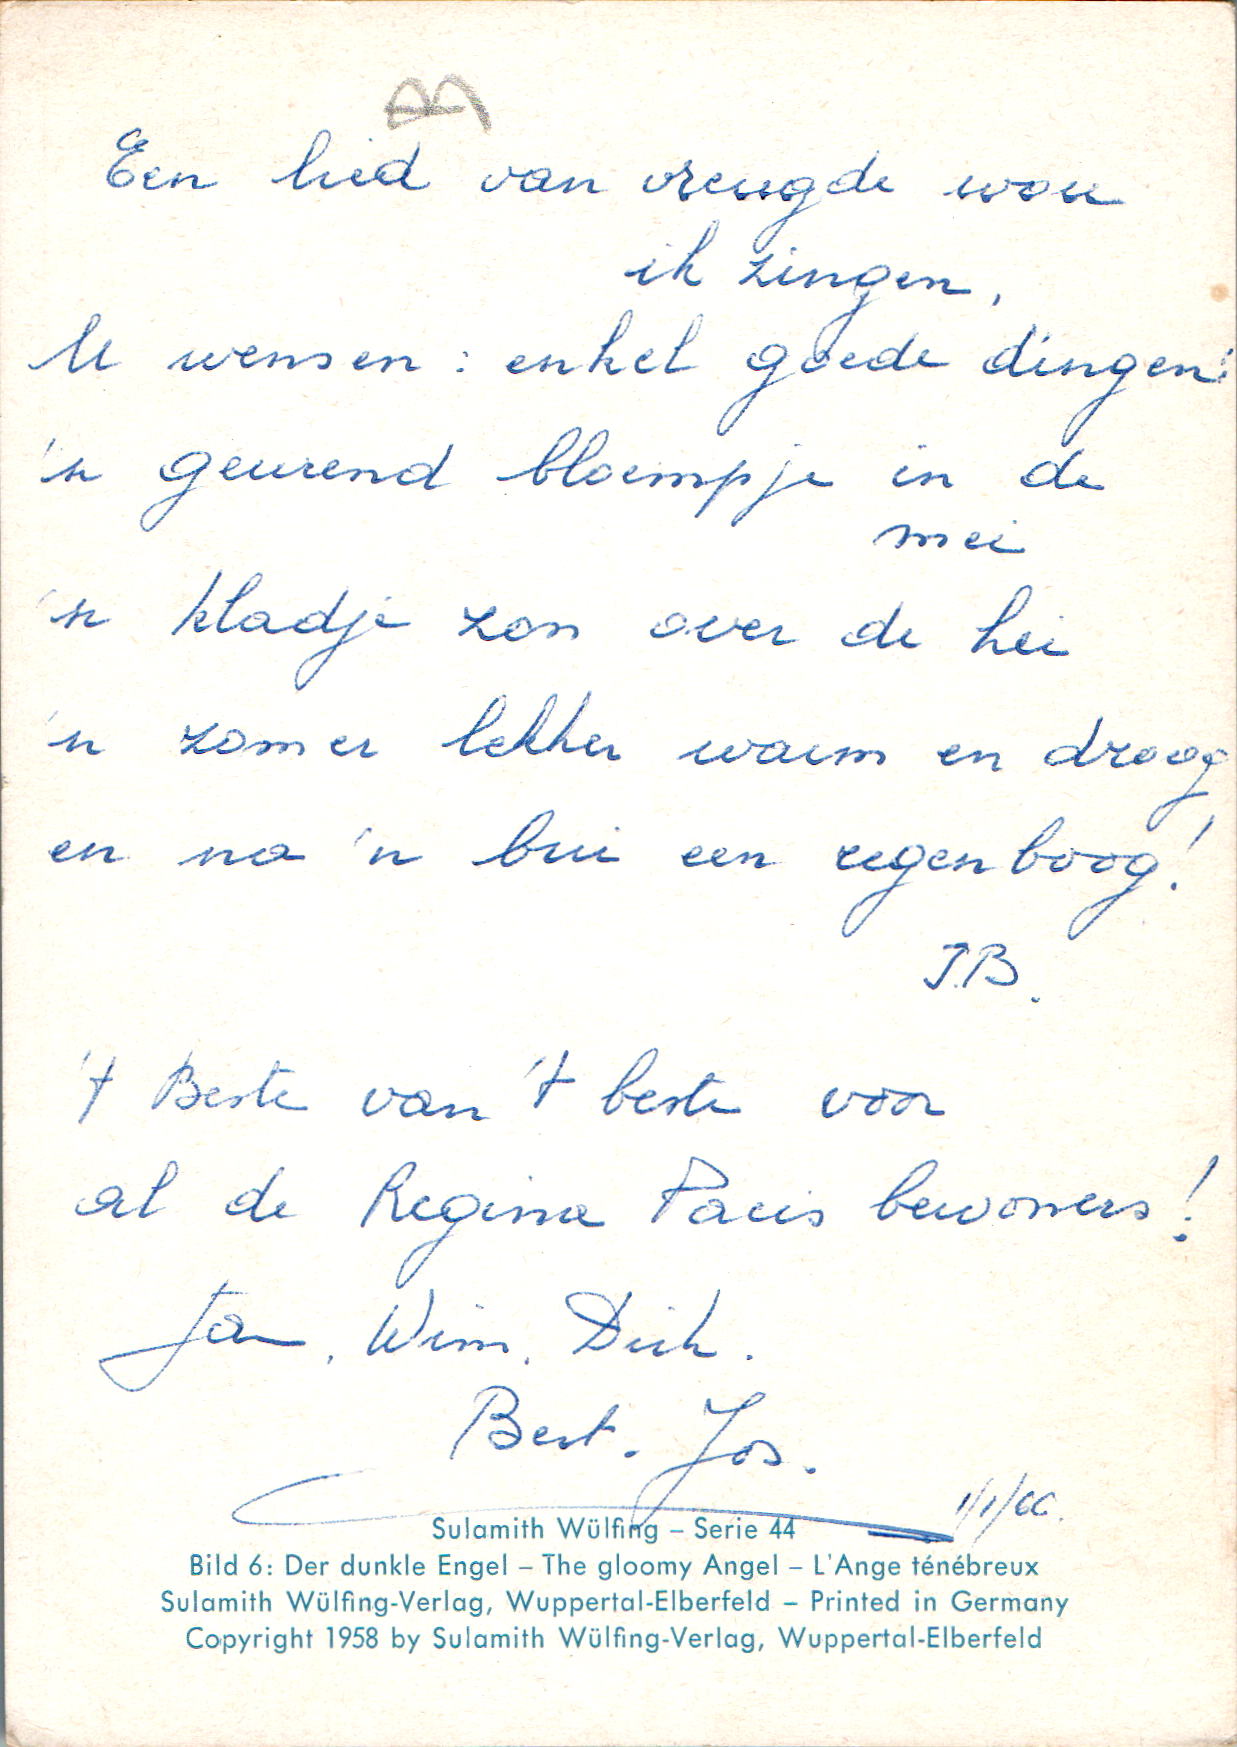 Een lied van vreugde wou
ik zingen,
U wensen: enkel goede dingen:
'n geurend bloempje in de
mei
'n kladje zon over de hei
'n zomer lekker warm en droog
en na 'n bui een regenboog!
J.B.
't Beste van 't beste voor
al de Regina Pacis bewoners!
Jan, Wim, Dirk.
Bert. Jos.
1/1/66.
Sulamith Wülfing – Serie 44
Bild 6: Der dunkle Engel – The gloomy Angel – L'Ange ténébreux
Sulamith Wülfing-Verlag, Wuppertal-Elberfeld – Printed in Germany
Copyright 1958 by Sulamith Wülfing-Verlag, Wuppertal-Elberfeld